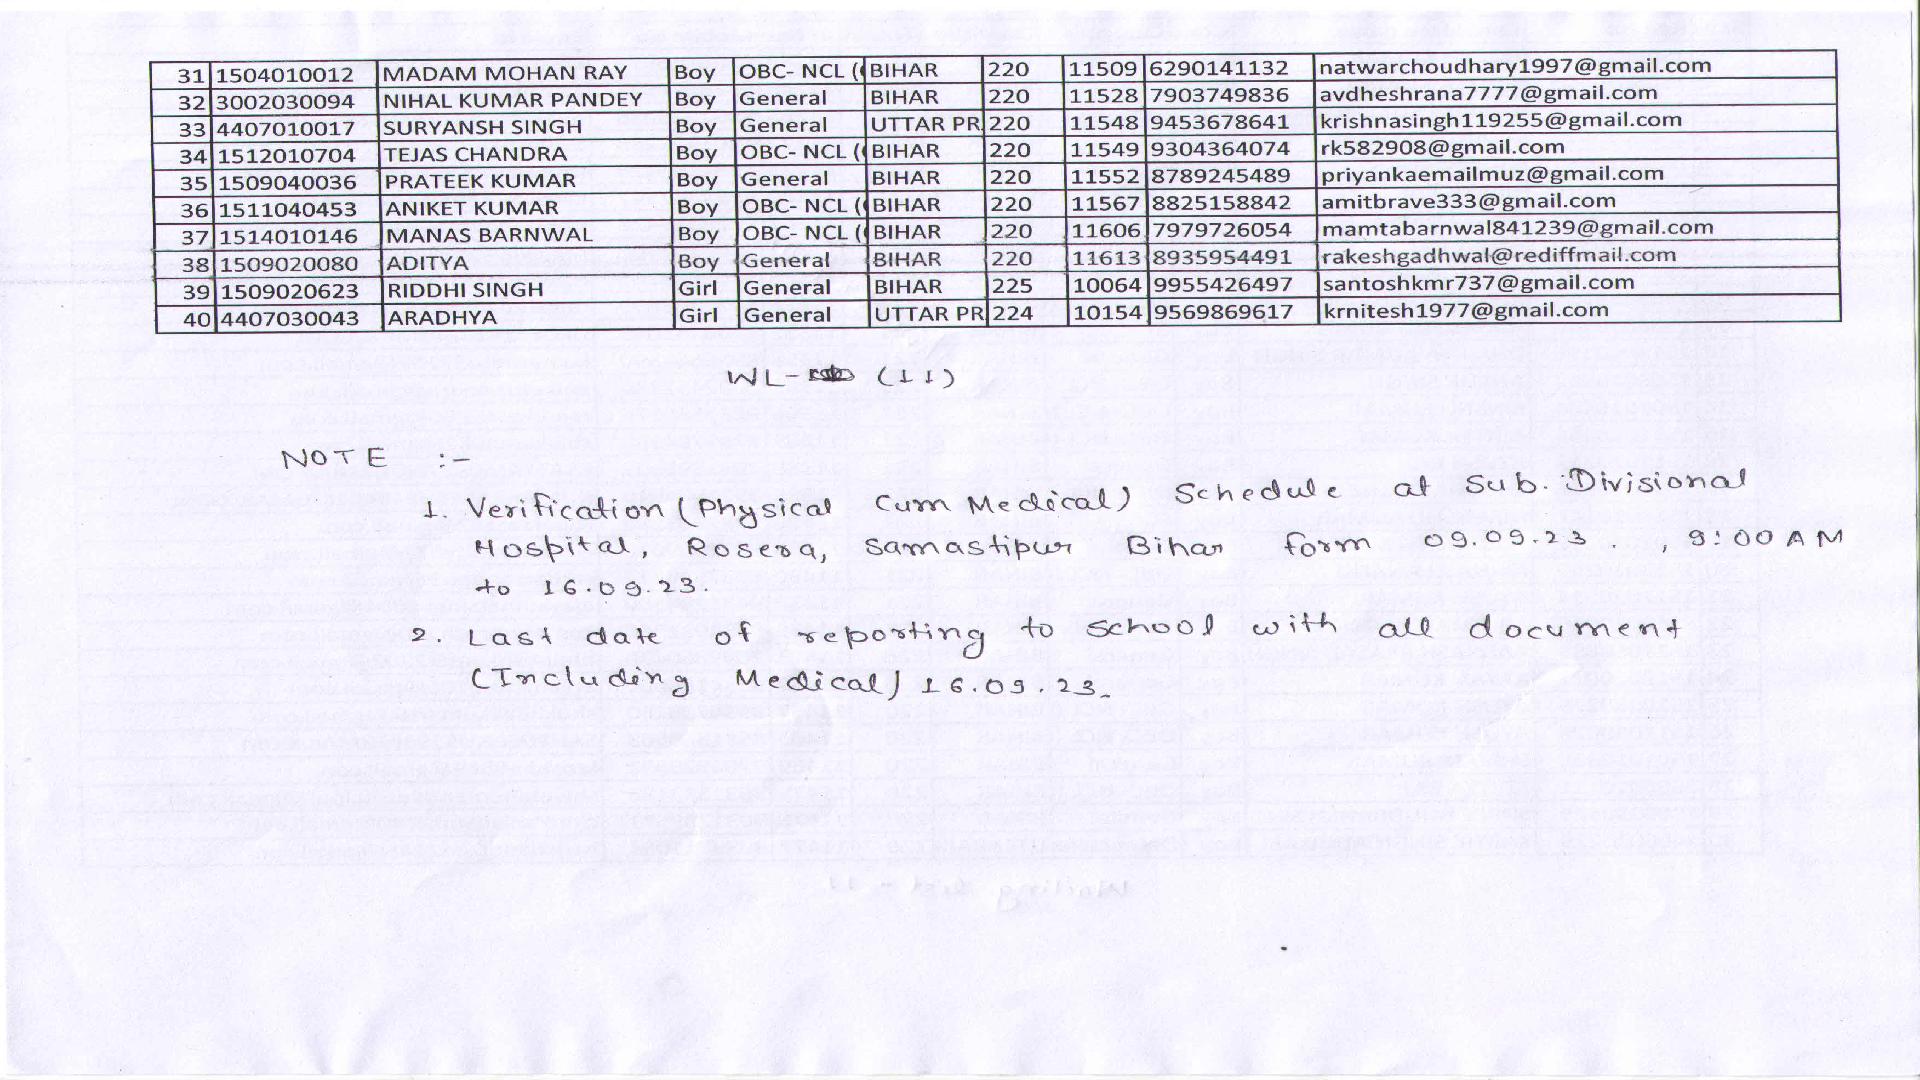 31 1504010012 MADAM MOHAN RAY Boy OBC- NCL ( BIHAR 220 11509 6290141132 natwarchoudhary1997@gmail.com
32 3002030094 NIHAL KUMAR PANDEY Boy General BIHAR 220 11528 7903749836 avdheshrana7777@gmail.com
33 4407010017 SURYANSH SINGH Boy General UTTAR PR 220 11548 9453678641 krishnasingh119255@gmail.com
34 1512010704 TEJAS CHANDRA Boy OBC- NCL ( BIHAR 220 11549 9304364074 rk582908@gmail.com
35 1509040036 PRATEEK KUMAR Boy General BIHAR 220 11552 8789245489 priyankaemailmuz@gmail.com
36 1511040453 ANIKET KUMAR Boy OBC- NCL ( BIHAR 220 11567 8825158842 amitbrave333@gmail.com
37 1514010146 MANAS BARNWAL Boy OBC- NCL ( BIHAR 220 11606 7979726054 mamtabarnwal841239@gmail.com
38 1509020080 ADITYA Boy General BIHAR 220 11613 8935954491 rakeshgadhwal@rediffmail.com
39 1509020623 RIDDHI SINGH Girl General BIHAR 225 10064 9955426497 santoshkmr737@gmail.com
40 4407030043 ARADHYA Girl General UTTAR PR 224 10154 9569869617 krnitesh1977@gmail.com
WL- (11)
NOTE :-
1. Verification (Physical Cum Medical) Schedule at Sub. Divisional
Hospital, Rosera, Samastipur Bihar form 09.09.23 . , 9:00 AM
to 16.09.23.
2. Last date of reporting to school with all document
(Including Medical) 16.09.23.